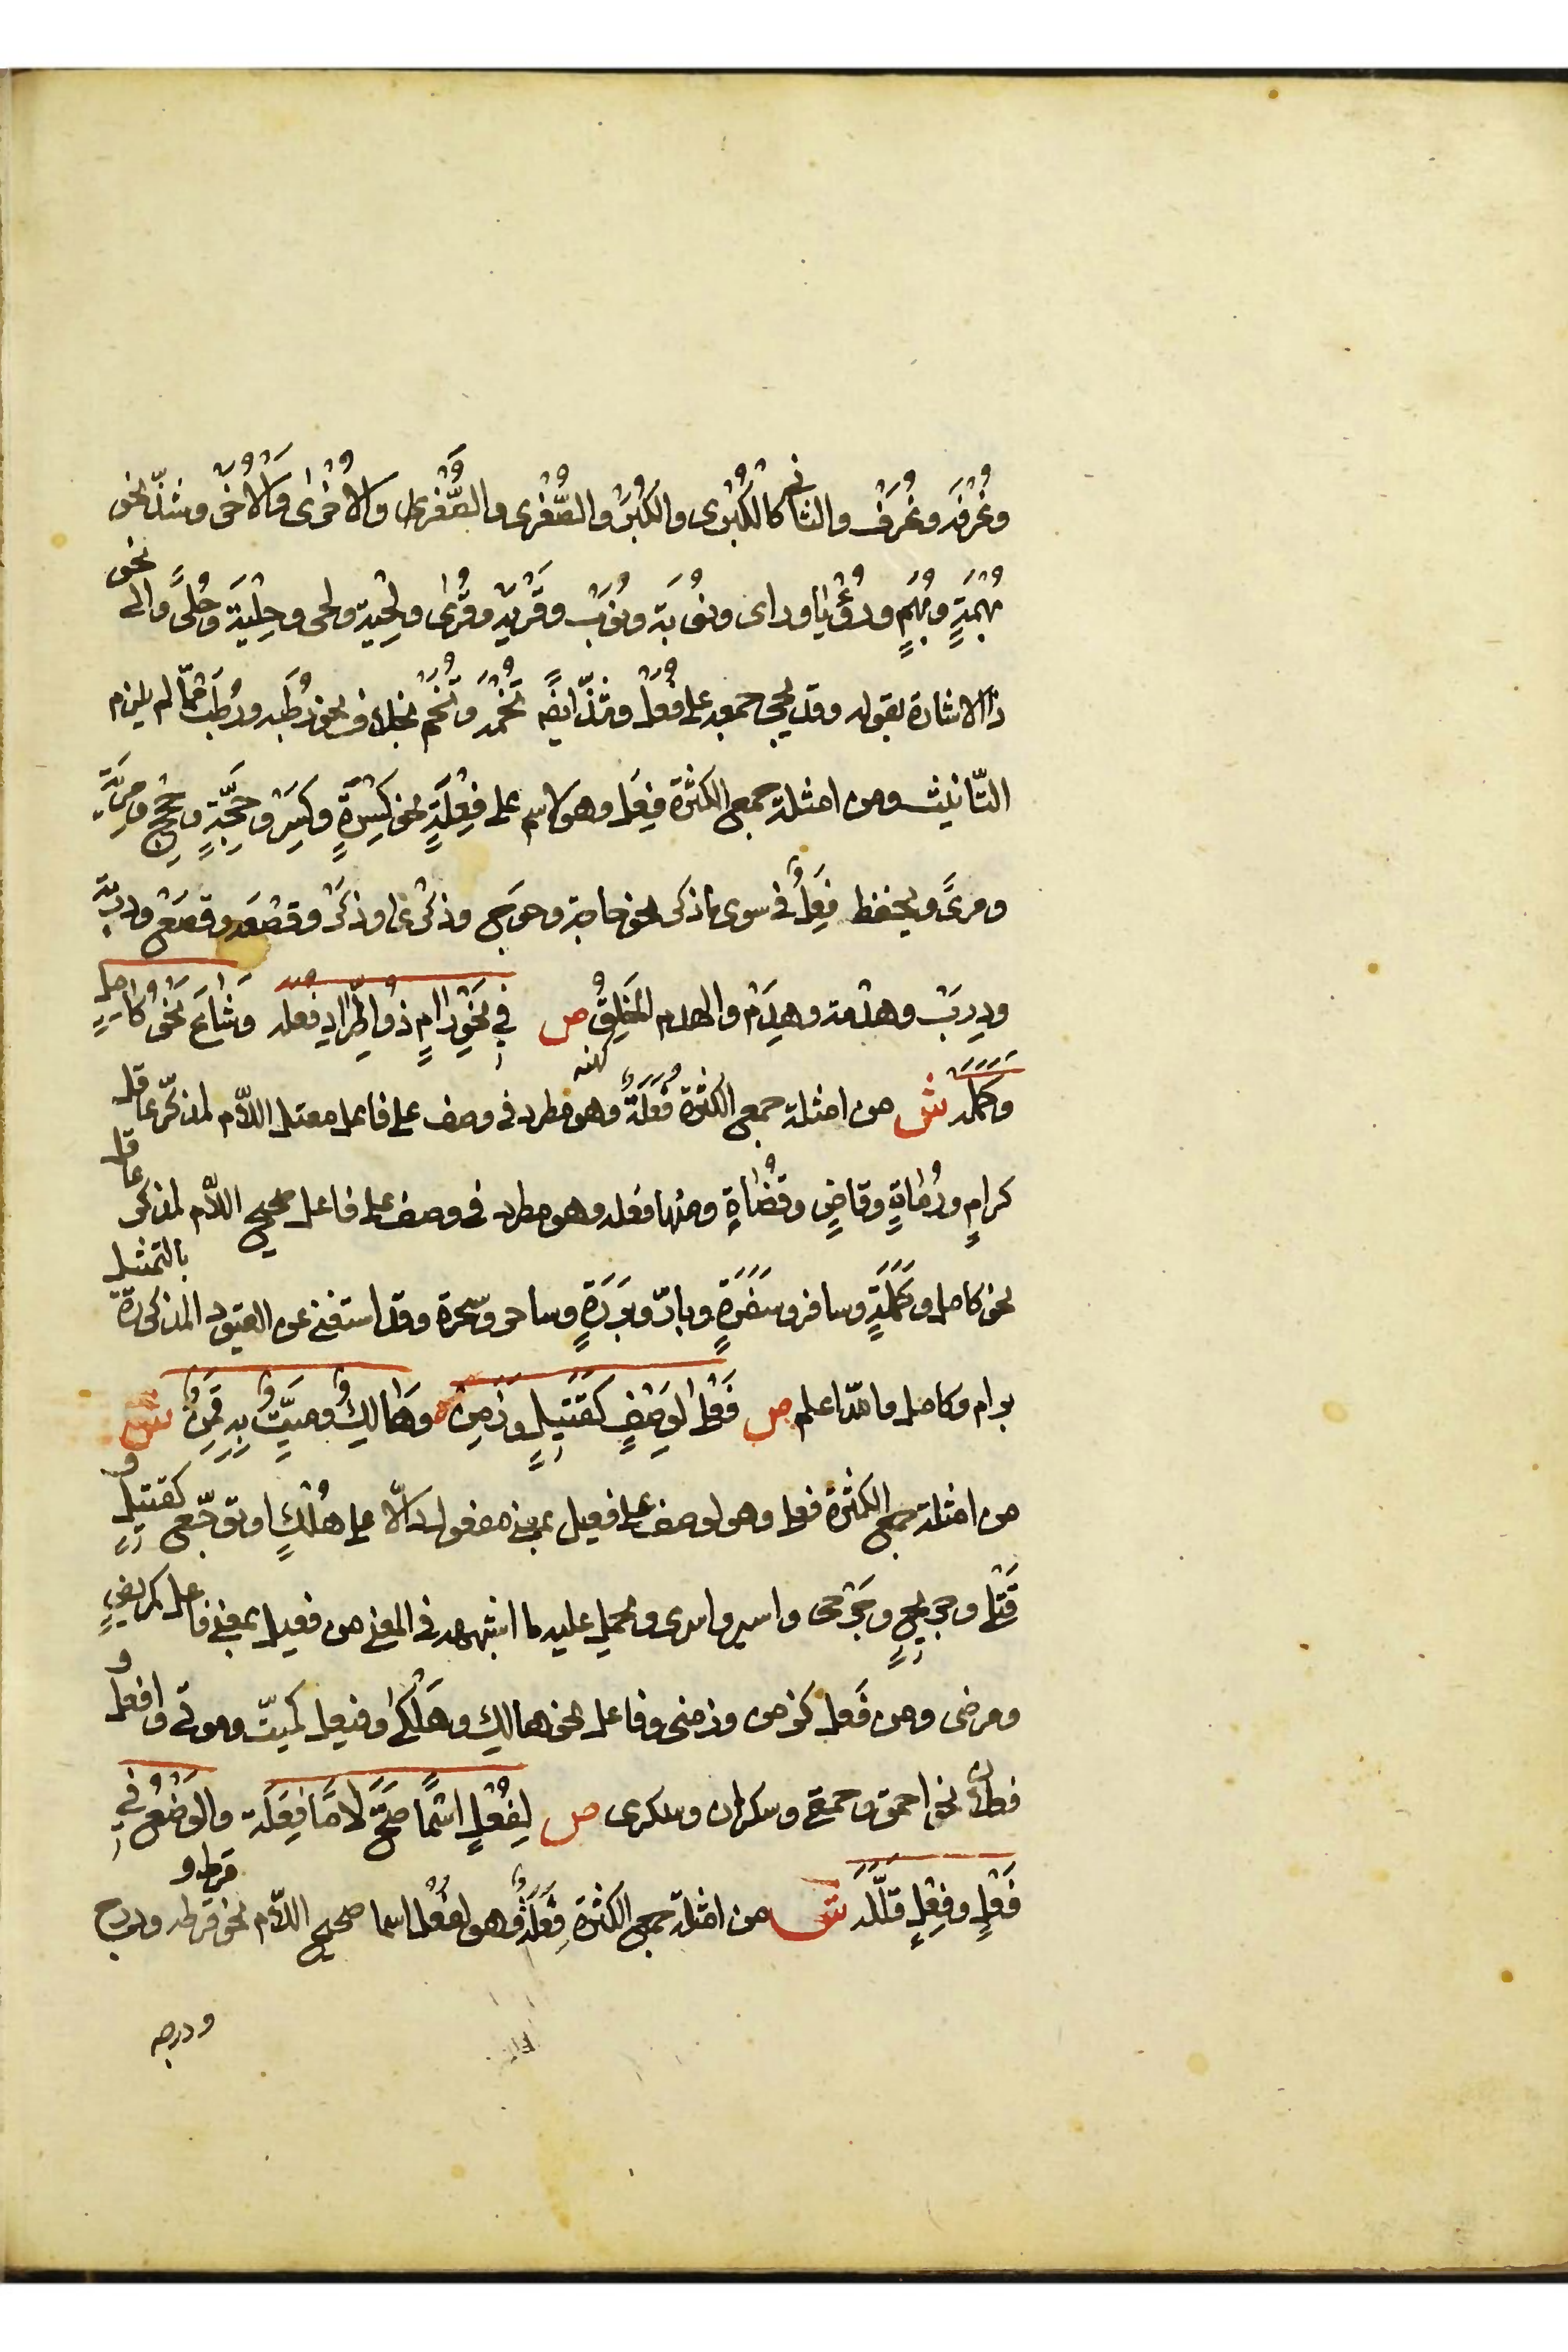 وغُرْفَه وغُرَف والثاني كالكُبْرى والكُبَر والصُّغْرى والصُّغَر والأُخْرى والأُخَر وشذّ نحو
بُهْمَةٍ وبُهَمٍ ورُؤْيا ورأى ونُوبَة ونُوَب وقَرْيَة وقُرى ولِحْيَة ولحى وحِلْيَة وحُلىً والى نحو
ذا الاشارة بقوله وقد يجي جمعه على فُعَل وشذّ ايضا تُخْمَة وتُخَم بخلاف نحو رُطَبه ورُطَب مما لم يلزم
التّانيث ومن امثلة جمع الكثرة فِعَل وهو لاسم على فِعْلَةٍ نحو كِسْرَةٍ وكِسَر وحِجَّةٍ وحِجَجٍ ومِرْيَةٍ
ومرىً ويحفظ فِعَلٌ في سوى ما ذكر نحو حاجة وحوج وذكرى وذِكَر وقصْعَه وقصع ودِرْبَة
ودِرَب وهدْمة وهِدَم والهدم الخَلِقُ ص في نَحْوِ رامٍ ذو اطِّرادٍ فُعَلَه وشاعَ نَحْوُ كامِلٍ
وكَمَلَه ش من امثلة جمع الكثرة فُعَلَةٌ لكنه وهو مطرد في وصف على فاعل معتل اللاّم لمذكّر عاقل
كرامٍ ورُماةٍ وقاضٍ وقُضاةٍ ومنها فعله وهو مطرد في وصف على فاعل صحيح اللاّم لمذكر عاقل
نحو كامل وكَمَلَةٍ وسافر وسَفَرَةٍ وبارّ وبَرَرَةٍ وساحر وسحرة وقد استغنى عن القيود المذكورة بالتمثيل
برام وكامل فاعلم ص فَعْلى لوَصْفٍ كقَتِيلٍ وزَمِنْ وهالِكٌ ومَيِّتٌ بِهِ قَمِنْ ش
من امثلة جمع الكثرة فعلى وهو لوصف على فعيل بمعنى مفعول دالاّ على هُلْكٍ او توجّع كقتيلٍ و
قَتْلى وجريحٍ وجَرْحى واسير واسرى ويحمل عليه ما اشبهه في المعنى من فعيل بمعنى فاعل كمريضٍ
ومرضى ومن فَعِل كزمن وزمنى وفاعل نحو هالك وهَلْكى وفيعل كميّت وموتى وافعل و
فعلان نحو احمق وحمقى وسكران وسكرى ص لِفُعْلٍ اسْمًا صَحَّ لامًا فِعَلَة والوَضْعُ في
فَعْلٍ وفِعْلٍ قلَّلَه ش من امثلة جمع الكثرة فِعَلَةٌ وهو لفُعْل اسما صحيح اللاّم نحو قرط و قرطه ودرج
ودرجه